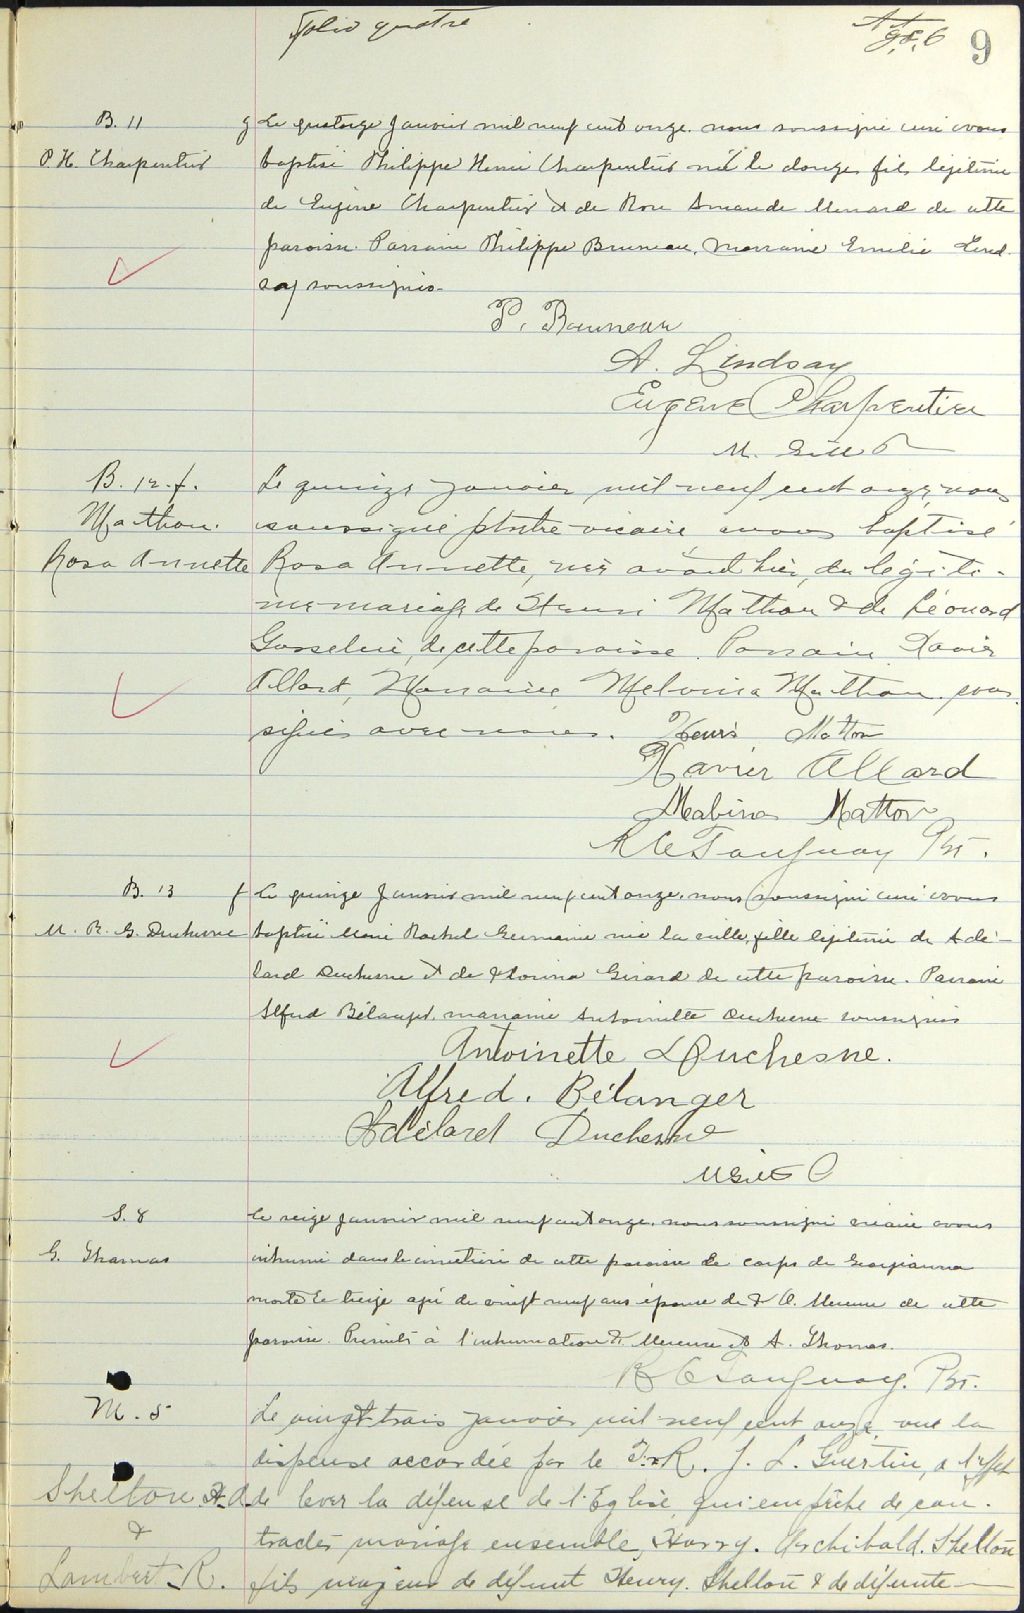 folio quatre
9
B. 11 g Le quatorze janvier mil neuf cent onze. nous soussigné curé avons
P. H. Charpentier baptisé Philippe Henri Charpentier né le douze, fils légitime
de Eugène Charpentier & de Rose Amande Menard de cette
paroisse. Parrain Philippe Bruneau, Marraine Emilie Lind-
say soussignés.
P. Bruneau
A. Lindsay
Eugene Charpentier
M. Gill
B. 12. f. Le quinze janvier mil neuf cent onze, nous
Mathon. soussigné prêtre vicaire avons baptisé
Rosa Annette Rosa Annette, née avant hier, du légiti-
me mariage de Henri Mathon & de Léonard
Gosselin, de cette paroisse. Parrain Xavier
Allard, Marraine Melvina Mathon. sous
signés avec nous. Henri Matton
Xavier Allard
Malvina Matton
Tanguay Pst.
B. 13 f Le quinze janvier mil neuf cent onze. nous soussigné curé avons
M. R. G. Duchesne baptisé Marie Rachel Germaine née la veille, fille légitime de Adé-
lard Duchesne & de Florina Girard de cette paroisse. Parrain
Alfred Bélanger. marraine Antoinette Duchesne soussignés
Antoinette Duchesne.
Alfred. Bélanger
Adélard Duchesne
M Gill
S. 8 Le seize janvier mil neuf cent onze. nous soussigné vicaire avons
G. Thomas inhumé dans le cimetière de cette paroisse le corps de Georgianna
morte le treize agé de vingt neuf ans épouse de A. de cette
paroisse. Présents à l'inhumation & A. Thomas.
Tanguay. Pst.
M. 5 Le vingt-trois janvier mil neuf cent onze, vue la
dispense accordée par le T. R. J. L. Guertin, a l'effet
Shelton H. A. de lever la défense de l'Eglise, qui empêche de con-
& tracter mariage ensemble, Harry. Archibald. Shelton
Lambert R. fils majeur de défunt Henry. Shelton & de défunte